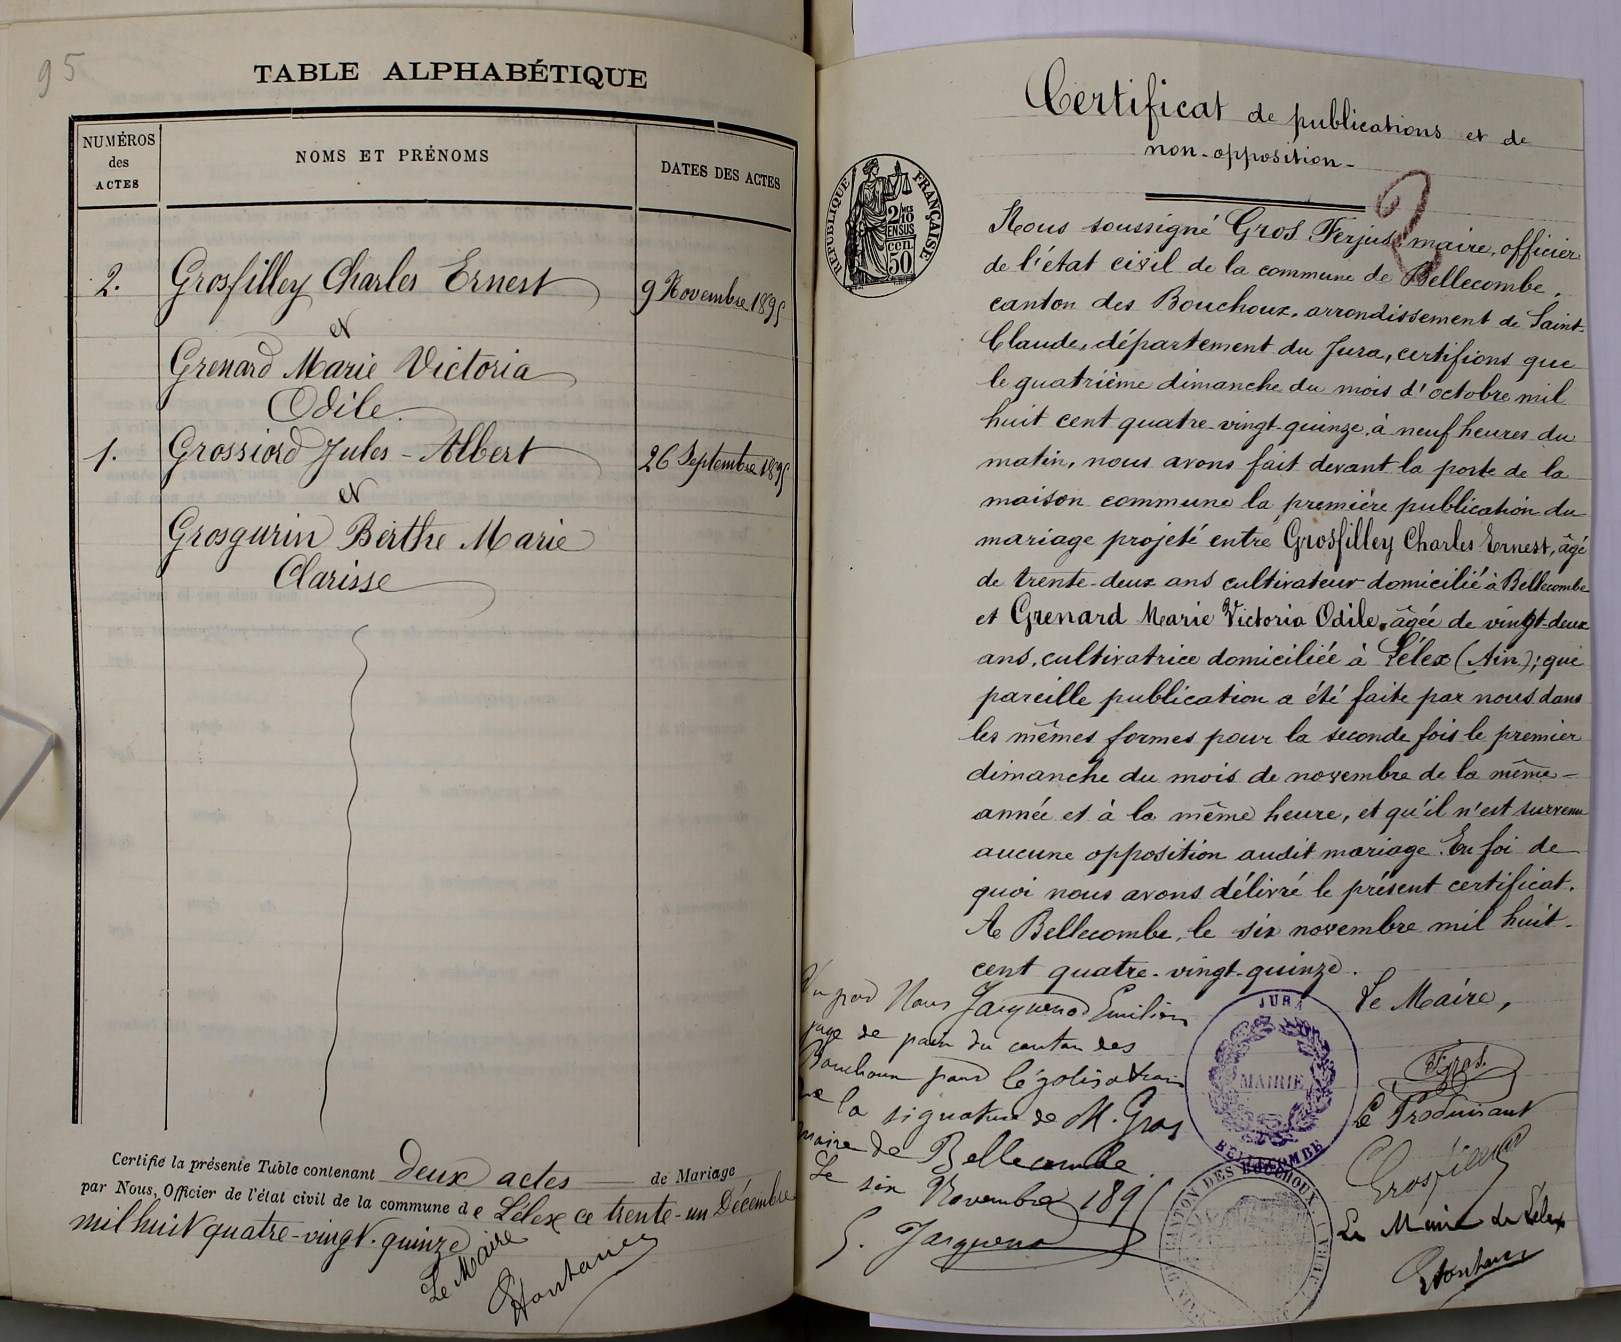 95
TABLE ALPHABÉTIQUE
NUMÉROS
des
ACTES
NOMS ET PRÉNOMS
DATES DES ACTES
2.
Grosfilley Charles Ernest
9 Novembre 1895
et
Grenard Marie Victoria
Odile
1.
Grossiord Jules-Albert
26 Septembre 1895
et
Grosgurin Berthe Marie
Clarisse
Certifié la présente Table contenant deux actes de Mariage
par Nous, Officier de l'état civil de la commune de Lélex ce trente-un Décembre
mil huit quatre-vingt-quinze
Le Maire
Certificat de publications et de
non-opposition-
RÉPUBLIQUE FRANÇAISE
2/10 EN SUS
50 cen
2
Nous soussigné Gros Ferjus, maire, officier
de l'état civil de la commune de Bellecombe,
canton des Bouchoux, arrondissement de Saint-
Claude, département du Jura, certifions que
le quatrième dimanche du mois d'octobre mil
huit cent quatre-vingt-quinze, à neuf heures du
matin, nous avons fait devant la porte de la
maison commune la première publication du
mariage projeté entre Grosfilley Charles Ernest, âgé
de trente-deux ans cultivateur domicilié à Bellecombe
et Grenard Marie Victoria Odile, âgée de vingt-deux
ans, cultivatrice domiciliée à Lélex (Ain); que
pareille publication a été faite par nous dans
les mêmes formes pour la seconde fois le premier
dimanche du mois de novembre de la même-
année et à la même heure, et qu'il n'est survenu
aucune opposition audit mariage. En foi de
quoi nous avons délivré le présent certificat.
A Bellecombe, le six novembre mil huit-
cent quatre-vingt-quinze.
Vu par Nous Jacquenod Emilien
juge de paix du canton des
Bouchoux pour légalisation
de la signature de M. Gros
maire de Bellecombe.
Le six Novembre 1895
E. Jacquenod
JURA
MAIRIE
BELLECOMBE
CANTON DES BOUCHOUX
Le Maire,
Gros
Le Produisant
Grosfilley
Le Maire de Lélex